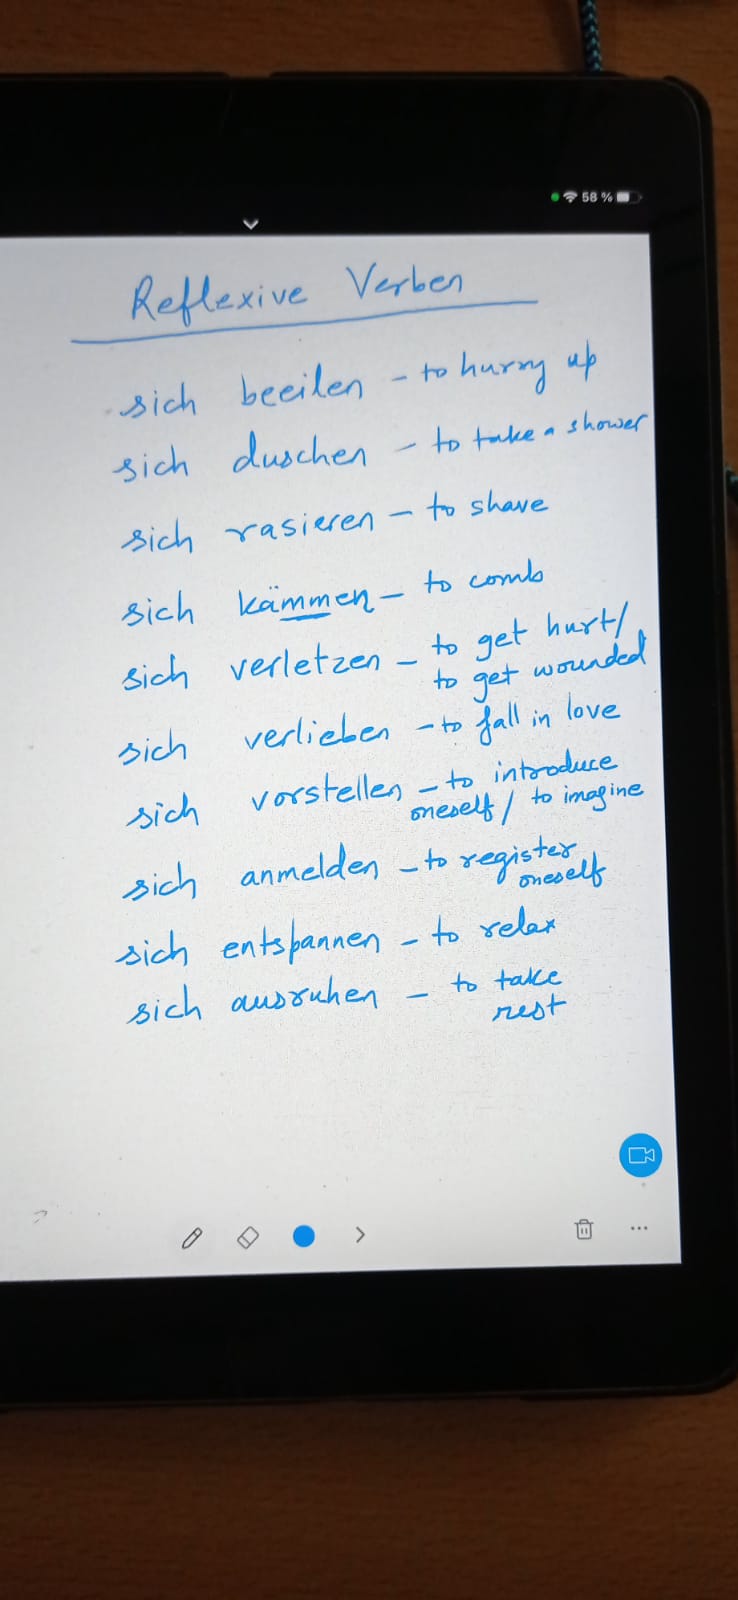 58 %
Reflexive Verben
sich beeilen - to hurry up
sich duschen - to take a shower
sich rasieren - to shave
sich kämmen - to comb
sich verletzen - to get hurt/
to get wounded
sich verlieben - to fall in love
sich vorstellen - to introduce
oneself / to imagine
sich anmelden - to register
oneself
sich entspannen - to relax
sich ausruhen - to take
rest